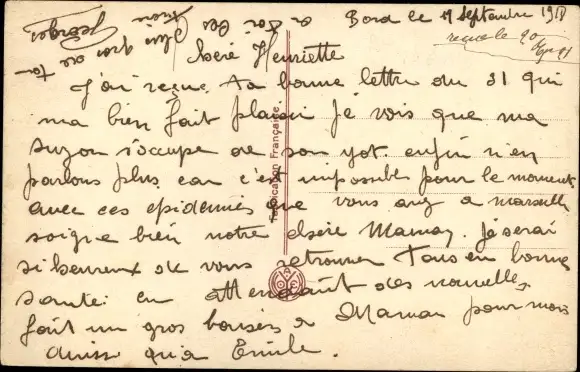 Bord le 17 Septembre 19
reçue le 20
Chère Henriette
J'ai reçue ta bonne lettre du 31 qui
ma bien fait plaisir je vois que ma
suzon s'occupe de son yot. enfin n'en
parlons plus car c'est impossible pour le moment
avec ces epidemies que vous avez a marseille
soigne bien notre chère Maman. je serai
si heureux de vous retrouver tous en bonne
santé. en attendant des nouvelles,
fait un gros baiser a Maman pour moi
aussi qu'a Emile.
a toi les
plus doux
ton
Georges
Fabrication Française